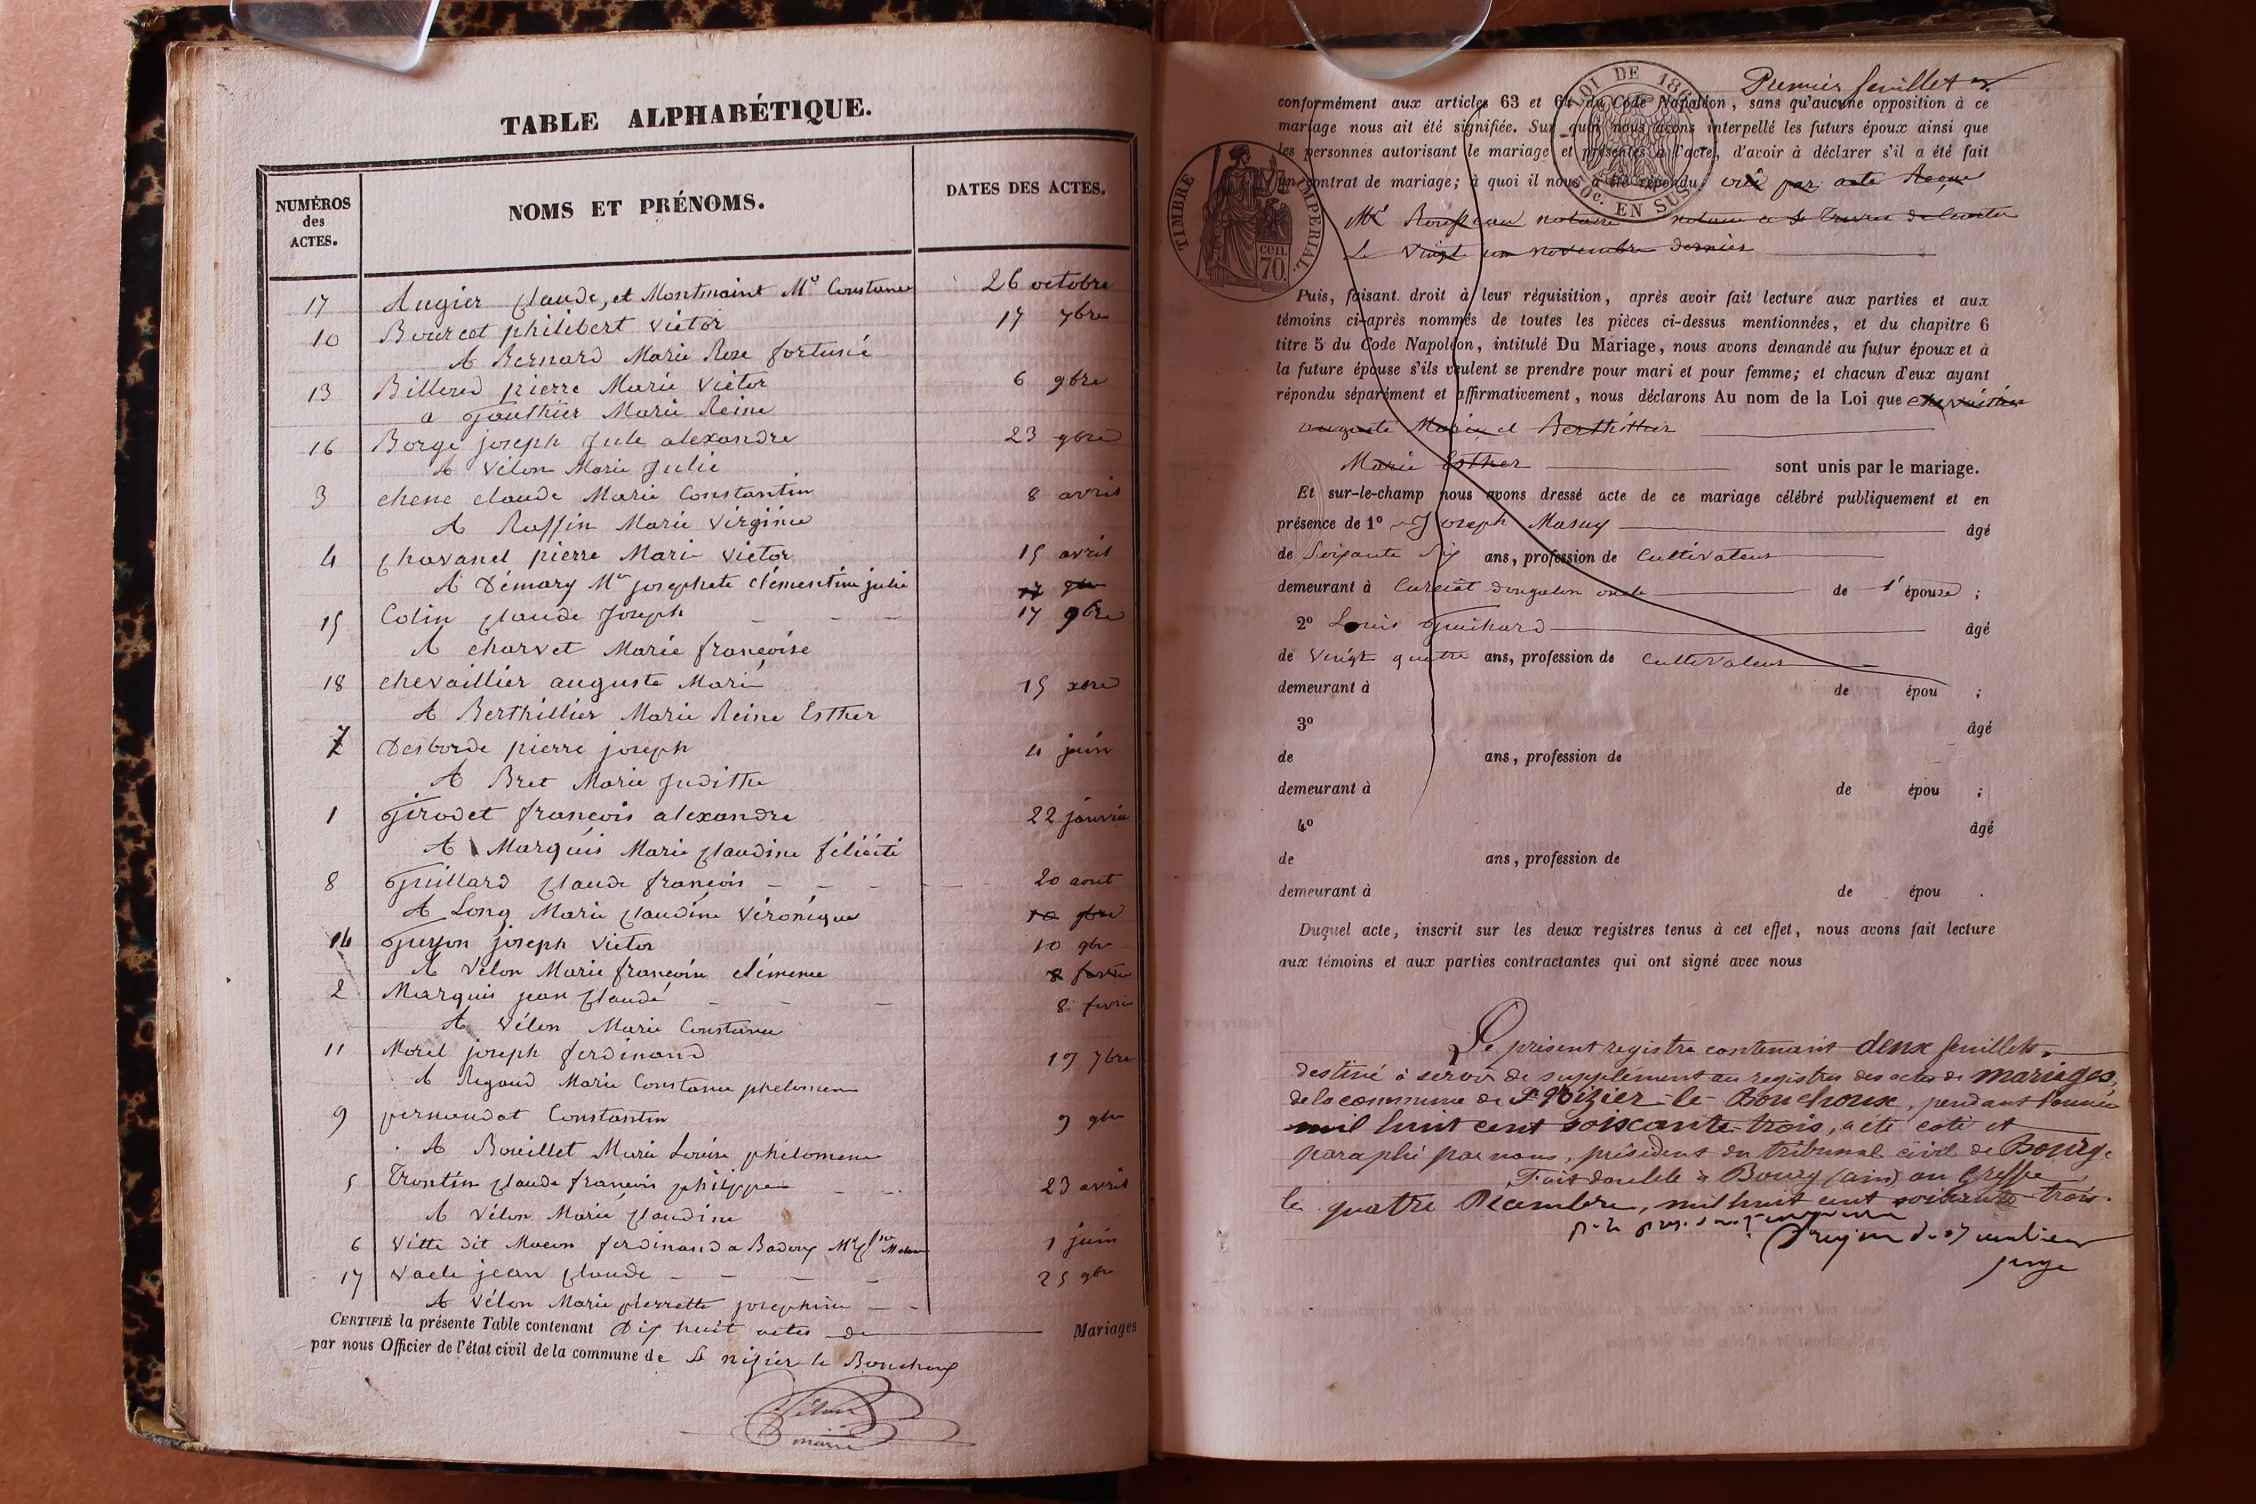 TABLE ALPHABÉTIQUE.
NUMÉROS des ACTES.
NOMS ET PRÉNOMS.
DATES DES ACTES.
17 Augier Claude, et Montmaint Mie Constance 26 octobre
10 Bourcet philibert victor 17 7bre
A Bernard Marie Rose fortuné
13 Billoud pierre Marie victor 6 9bre
a Gauthier Marie Reine
16 Borge joseph Jule alexandre 23 9bre
A Vélon Marie Julie
3 chene claude Marie Constantin 8 avril
A Raffin Marie Virginie
4 Chavanel pierre Mari victor 15 avril
A Démary Mie josephete clémentine julie 17 9bre
15 Colin Claude Joseph - - - 17 9bre
A charvet Marie françoise
18 chevaillier auguste Marie 15 xbre
A Berthillier Marie Reine Esther
7 Desborde pierre joseph 4 juin
A Bret Marie Judithe
1 Girodet françois alexandre 22 janvier
A Marquis Marie Claudine félicité
8 Guillard Claude françois - - - 20 aout
A Long Marie Claudine Véronique 10 9bre
14 Guyon joseph victor 10 9bre
A Vélon Marie françoise clémence 8 fevrier
2 Marquis jean Claude - - - 8 fevrier
A Vélon Marie Constance
11 Morel joseph ferdinand 19 7bre
A Regaud Marie Constance phelomene
9 pernaudat Constantin 9 9bre
A Bouillet Marie Louise philomene
5 Trontin Claude françois philippe - - 23 avril
A Vélon Marie Claudine
6 Vitte dit Macon ferdinand a Badoux 1 juin
17 Vacle jean Claude - - - - 25 9bre
A Vélon Marie pierrette josephine - -
CERTIFIÉ la présente Table contenant Dix huit actes de Mariages
par nous Officier de l'état civil de la commune de St nizier le Bouchoux
Vélon
maire
Premier feuillet
LOI DE 186
10c. EN SUS
TIMBRE IMPÉRIAL.
cen. 70.
conformément aux articles 63 et 64 du Code Napoléon, sans qu'aucune opposition à ce
mariage nous ait été signifiée. Sur quoi nous avons interpellé les futurs époux ainsi que
les personnes autorisant le mariage et présentes à l'acte, d'avoir à déclarer s'il a été fait
un contrat de mariage; à quoi il nous a été répondu: oui par acte Reçue
Me notaire notaire a St Trivier de Courtes
Le Vingt un novembre dernier
Puis, faisant droit à leur réquisition, après avoir fait lecture aux parties et aux
témoins ci-après nommés de toutes les pièces ci-dessus mentionnées, et du chapitre 6
titre 5 du Code Napoléon, intitulé Du Mariage, nous avons demandé au futur époux et à
la future épouse s'ils veulent se prendre pour mari et pour femme; et chacun d'eux ayant
répondu séparément et affirmativement, nous déclarons Au nom de la Loi que chevaillier
auguste Marie et Berthillier
Marie Esther sont unis par le mariage.
Et sur-le-champ nous avons dressé acte de ce mariage célébré publiquement et en
présence de 1° Joseph Masuy âgé
de Soixante Six ans, profession de Cultivateur
demeurant à Curciat dongalon oncle de l'épouse ;
2° Louis Guichard âgé
de vingt quatre ans, profession de Cultivateur
demeurant à de épou ;
3° âgé
de ans, profession de
demeurant à de épou ;
4° âgé
de ans, profession de
demeurant à de épou .
Duquel acte, inscrit sur les deux registres tenus à cet effet, nous avons fait lecture
aux témoins et aux parties contractantes qui ont signé avec nous
Le présent registre contenant deux feuillets,
destiné à servir de supplément au registre des actes de mariages,
de la commune de St Nizier-le-Bouchoux, pendant l'année
mil huit cent soixante-trois, a été coté et
paraphé par nous, président du tribunal civil de Bourg.
Fait double à Bourg (ain) au Greffe
le quatre Décembre, mil huit cent soixante-trois.
juge